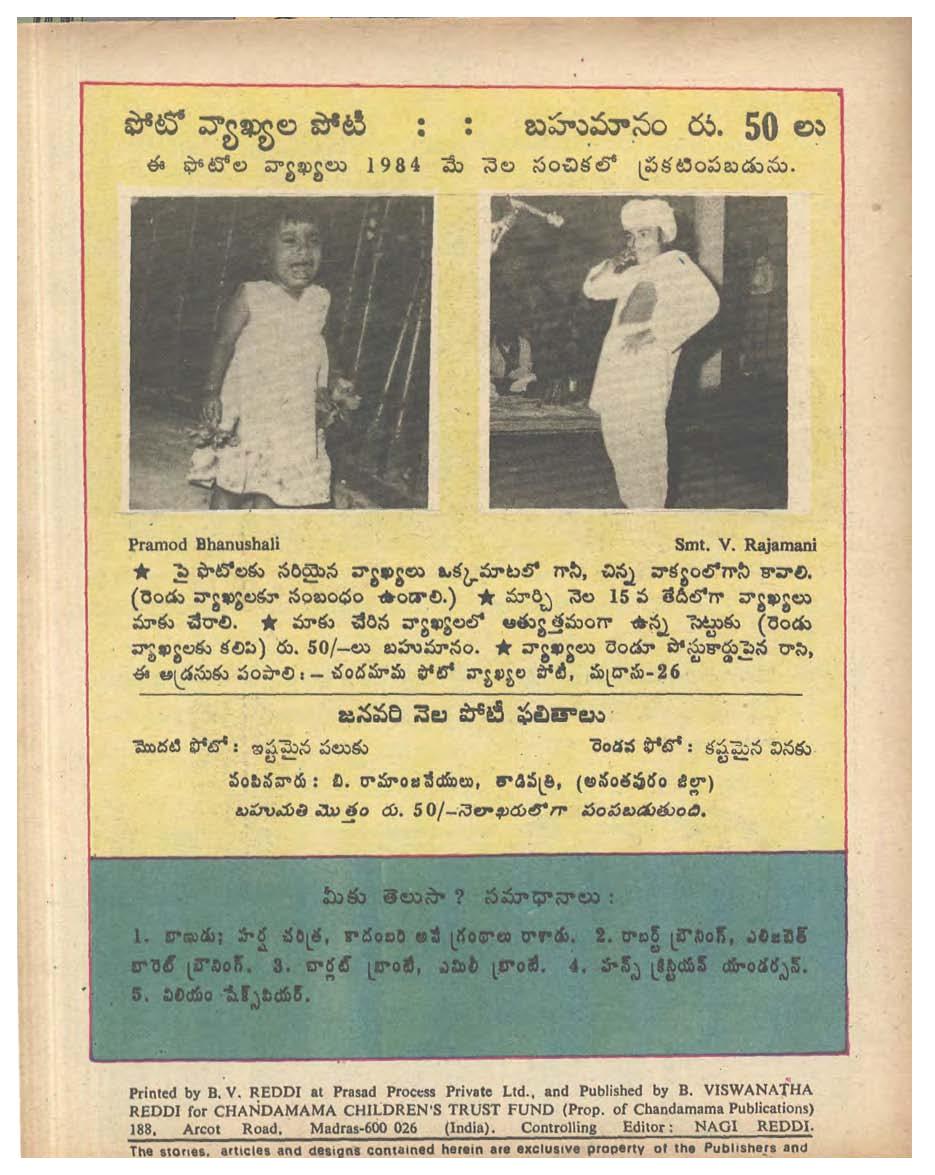 ఫోటో వ్యాఖ్యల పోటీ : : బహుమానం రు. 50 లు
ఈ ఫోటోల వ్యాఖ్యలు 1984 మే నెల సంచికలో ప్రకటింపబడును.
Pramod Bhanushali Smt. V. Rajamani
★ పై ఫొటోలకు సరియైన వ్యాఖ్యలు ఒక్కమాటలో గానీ, చిన్న వాక్యంలోగానీ కావాలి.
(రెండు వ్యాఖ్యలకూ సంబంధం ఉండాలి.) ★ మార్చి నెల 15 వ తేదీలోగా వ్యాఖ్యలు
మాకు చేరాలి. ★ మాకు చేరిన వ్యాఖ్యలలో అత్యుత్తమంగా ఉన్న సెట్టుకు (రెండు
వ్యాఖ్యలకు కలిపి) రు. 50/–లు బహుమానం. ★ వ్యాఖ్యలు రెండూ పోస్టుకార్డుపైన రాసి,
ఈ అడ్రసుకు పంపాలి :– చందమామ ఫోటో వ్యాఖ్యల పోటీ, మద్రాసు-26
జనవరి నెల పోటీ ఫలితాలు
మొదటి ఫోటో : ఇష్టమైన పలుకు రెండవ ఫోటో : కష్టమైన వినకు
పంపినవారు : బి. రామాంజనేయులు, తాడిపత్రి, (అనంతపురం జిల్లా)
బహుమతి మొత్తం రు. 50/–నెలాఖరులోగా పంపబడుతుంది.
మీకు తెలుసా ? సమాధానాలు :
1. బాణుడు; హర్ష చరిత్ర, కాదంబరి అనే గ్రంథాలు రాశాడు. 2. రాబర్ట్ బ్రౌనింగ్, ఎలిజబెత్
బారెట్ బ్రౌనింగ్. 3. చార్లట్ బ్రాంటే, ఎమిలీ బ్రాంటే. 4. హన్స్ క్రిస్టియన్ యాండర్సన్.
5. విలియం షేక్స్‌పియర్.
Printed by B. V. REDDI at Prasad Process Private Ltd., and Published by B. VISWANATHA
REDDI for CHANDAMAMA CHILDREN'S TRUST FUND (Prop. of Chandamama Publications)
188, Arcot Road, Madras-600 026 (India). Controlling Editor : NAGI REDDI.
The stories, articles and designs contained herein are exclusive property of the Publishers and